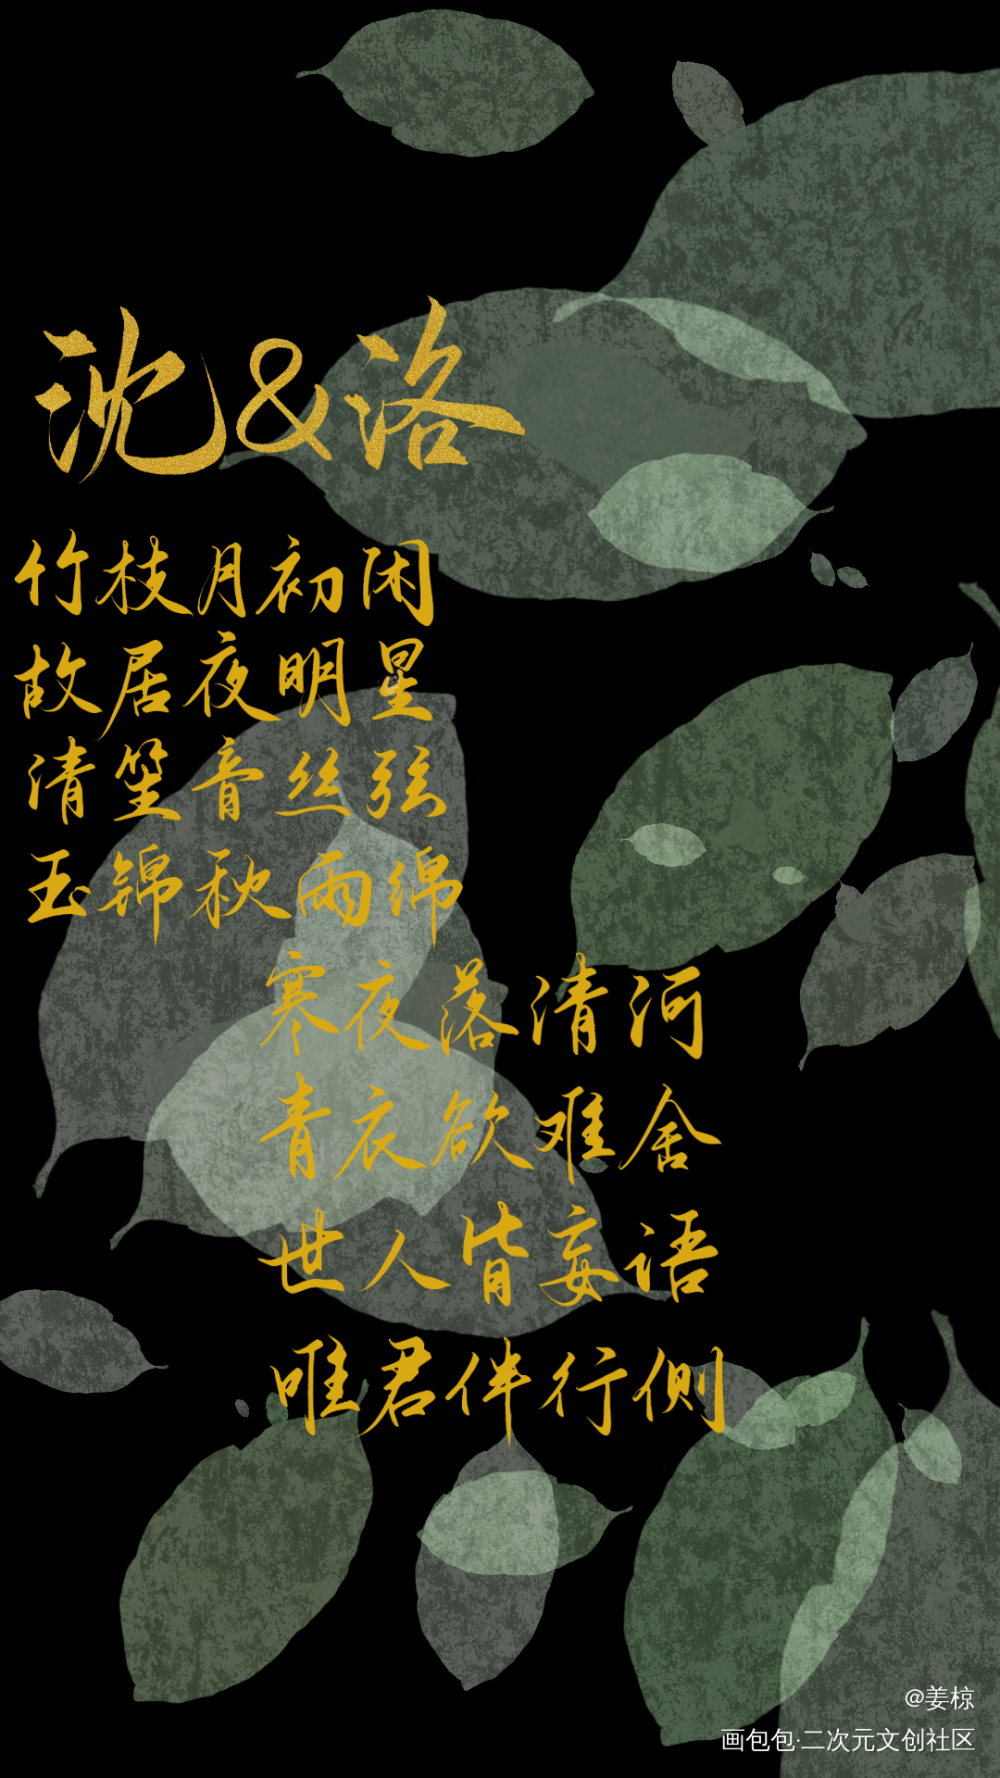 沈&洛
竹枝月初闲
故居夜明星
清笙音丝弦
玉锦秋雨绵
寒夜落清河
青衣欲难舍
世人皆妄语
唯君伴行侧
@姜椋
画包包·二次元文创社区